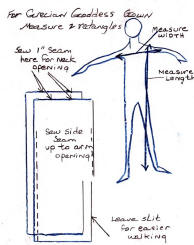 For Grecian Goddess Gown
Measure 2 rectangles
Measure
Width
Sew 1" Seam
here for Neck
opening
Measure
Length
Sew side
Seam
up to arm
opening
Leave slit
for easier
walking